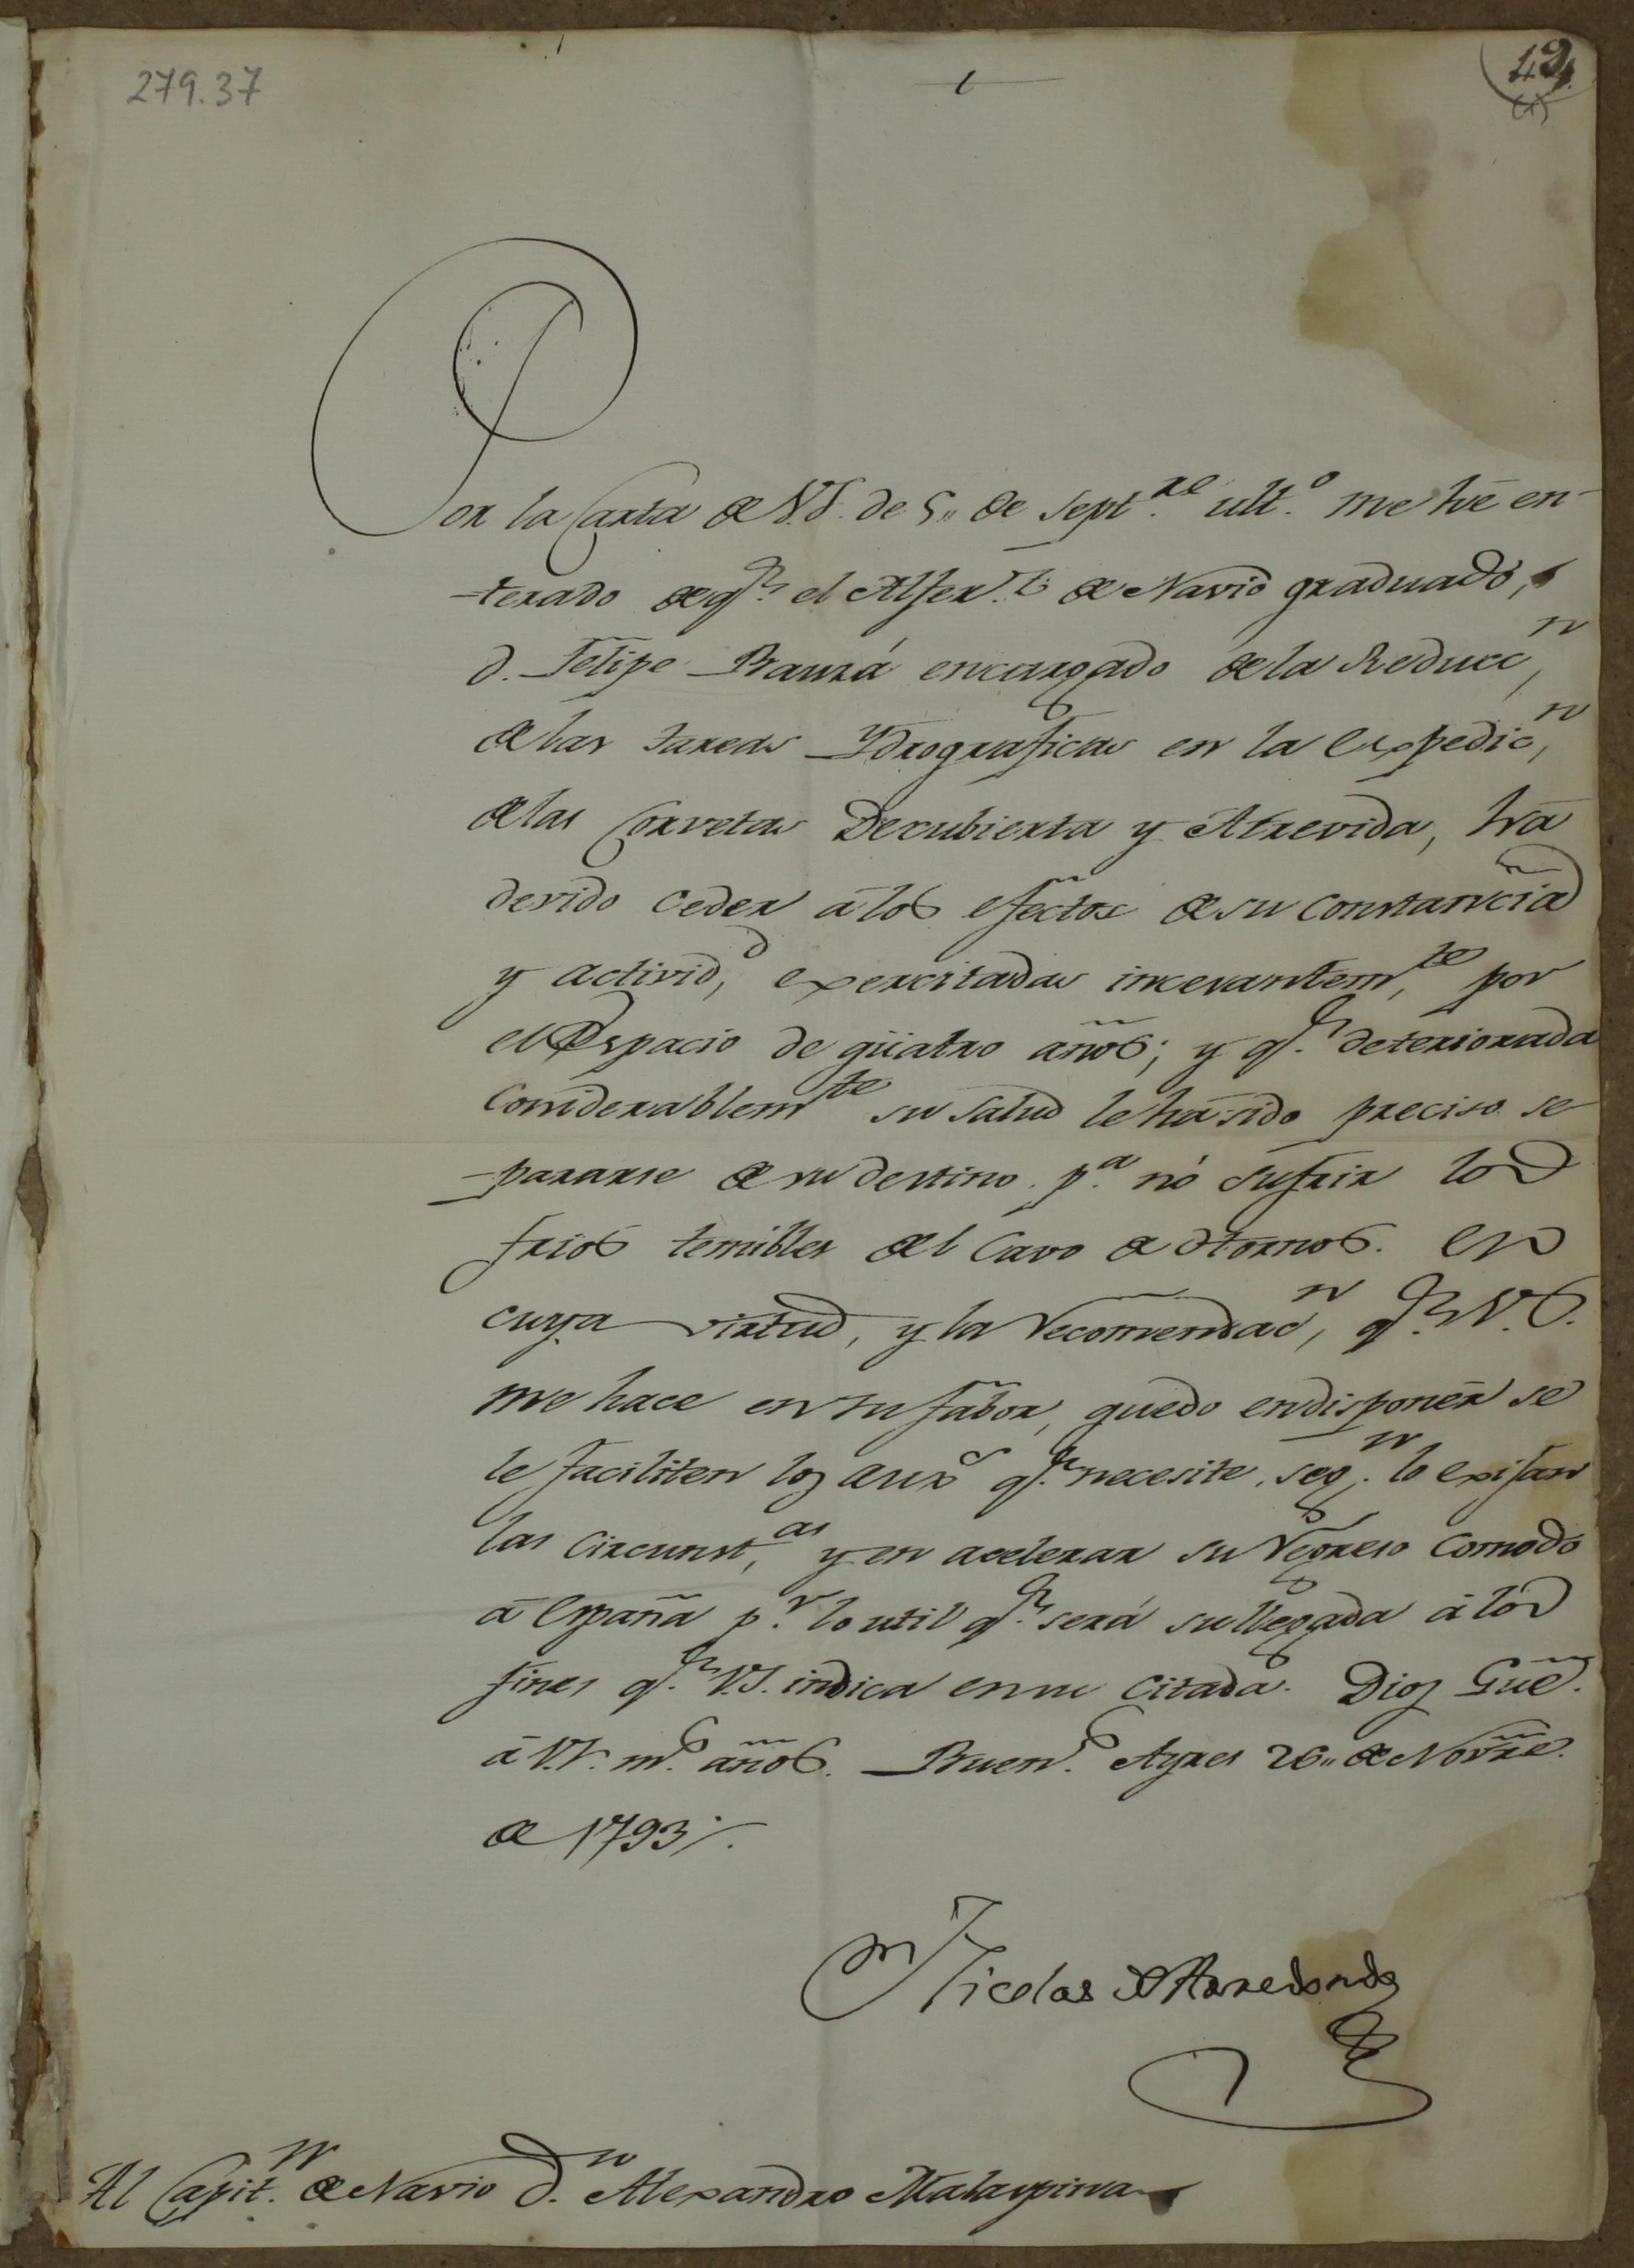 279.37
42
(1)
Por la Carta de V.S. de 5,, de Sept.re ult.o me hé en-
-terado de q.e el Alfer.z de Navio graduado,
d. Felipe Bauzá encargado de la Reducc,n
de las tareas Ydrograficas en la Expedic,n
de las Corvetas Descubierta y Atrevida, há
devido ceder á los efectos de su Constancia
y activid,d exercitadas incesantem,te por
el Espacio de qüatro años; y q.e deteriorada
Considerablemte su salud le há sido preciso se-
-pararse de su destino p.a nó sufrir los
frios temibles del Cavo de Hornos. En
cuya virtud, y la recomendac,n q.e V.S.
me hace en su fabor, quedo en disponér se
le faciliten los auxs q.e necesite, seg.n lo exijan
las Circunst,as y en acelerar su regreso Comodo
á España p.r lo util q.e será su llegada á los
fines q.e V.S. indica en su Citada. Dios Güe.
á V.S. m.s años. Buen.s Ayres 26,, de Novre.
de 1793 /.
Nicolas de Arredondo
Al Capit.n de Navio D.n Alexandro Malaspina